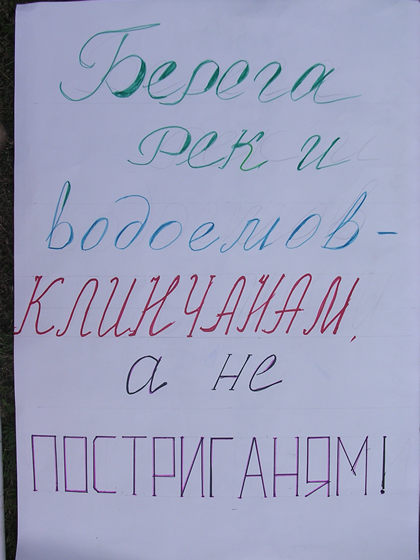 Берега
рек и
водоемов-
КЛИНЧАНАМ,
а не
ПОСТРИГАНЯМ!